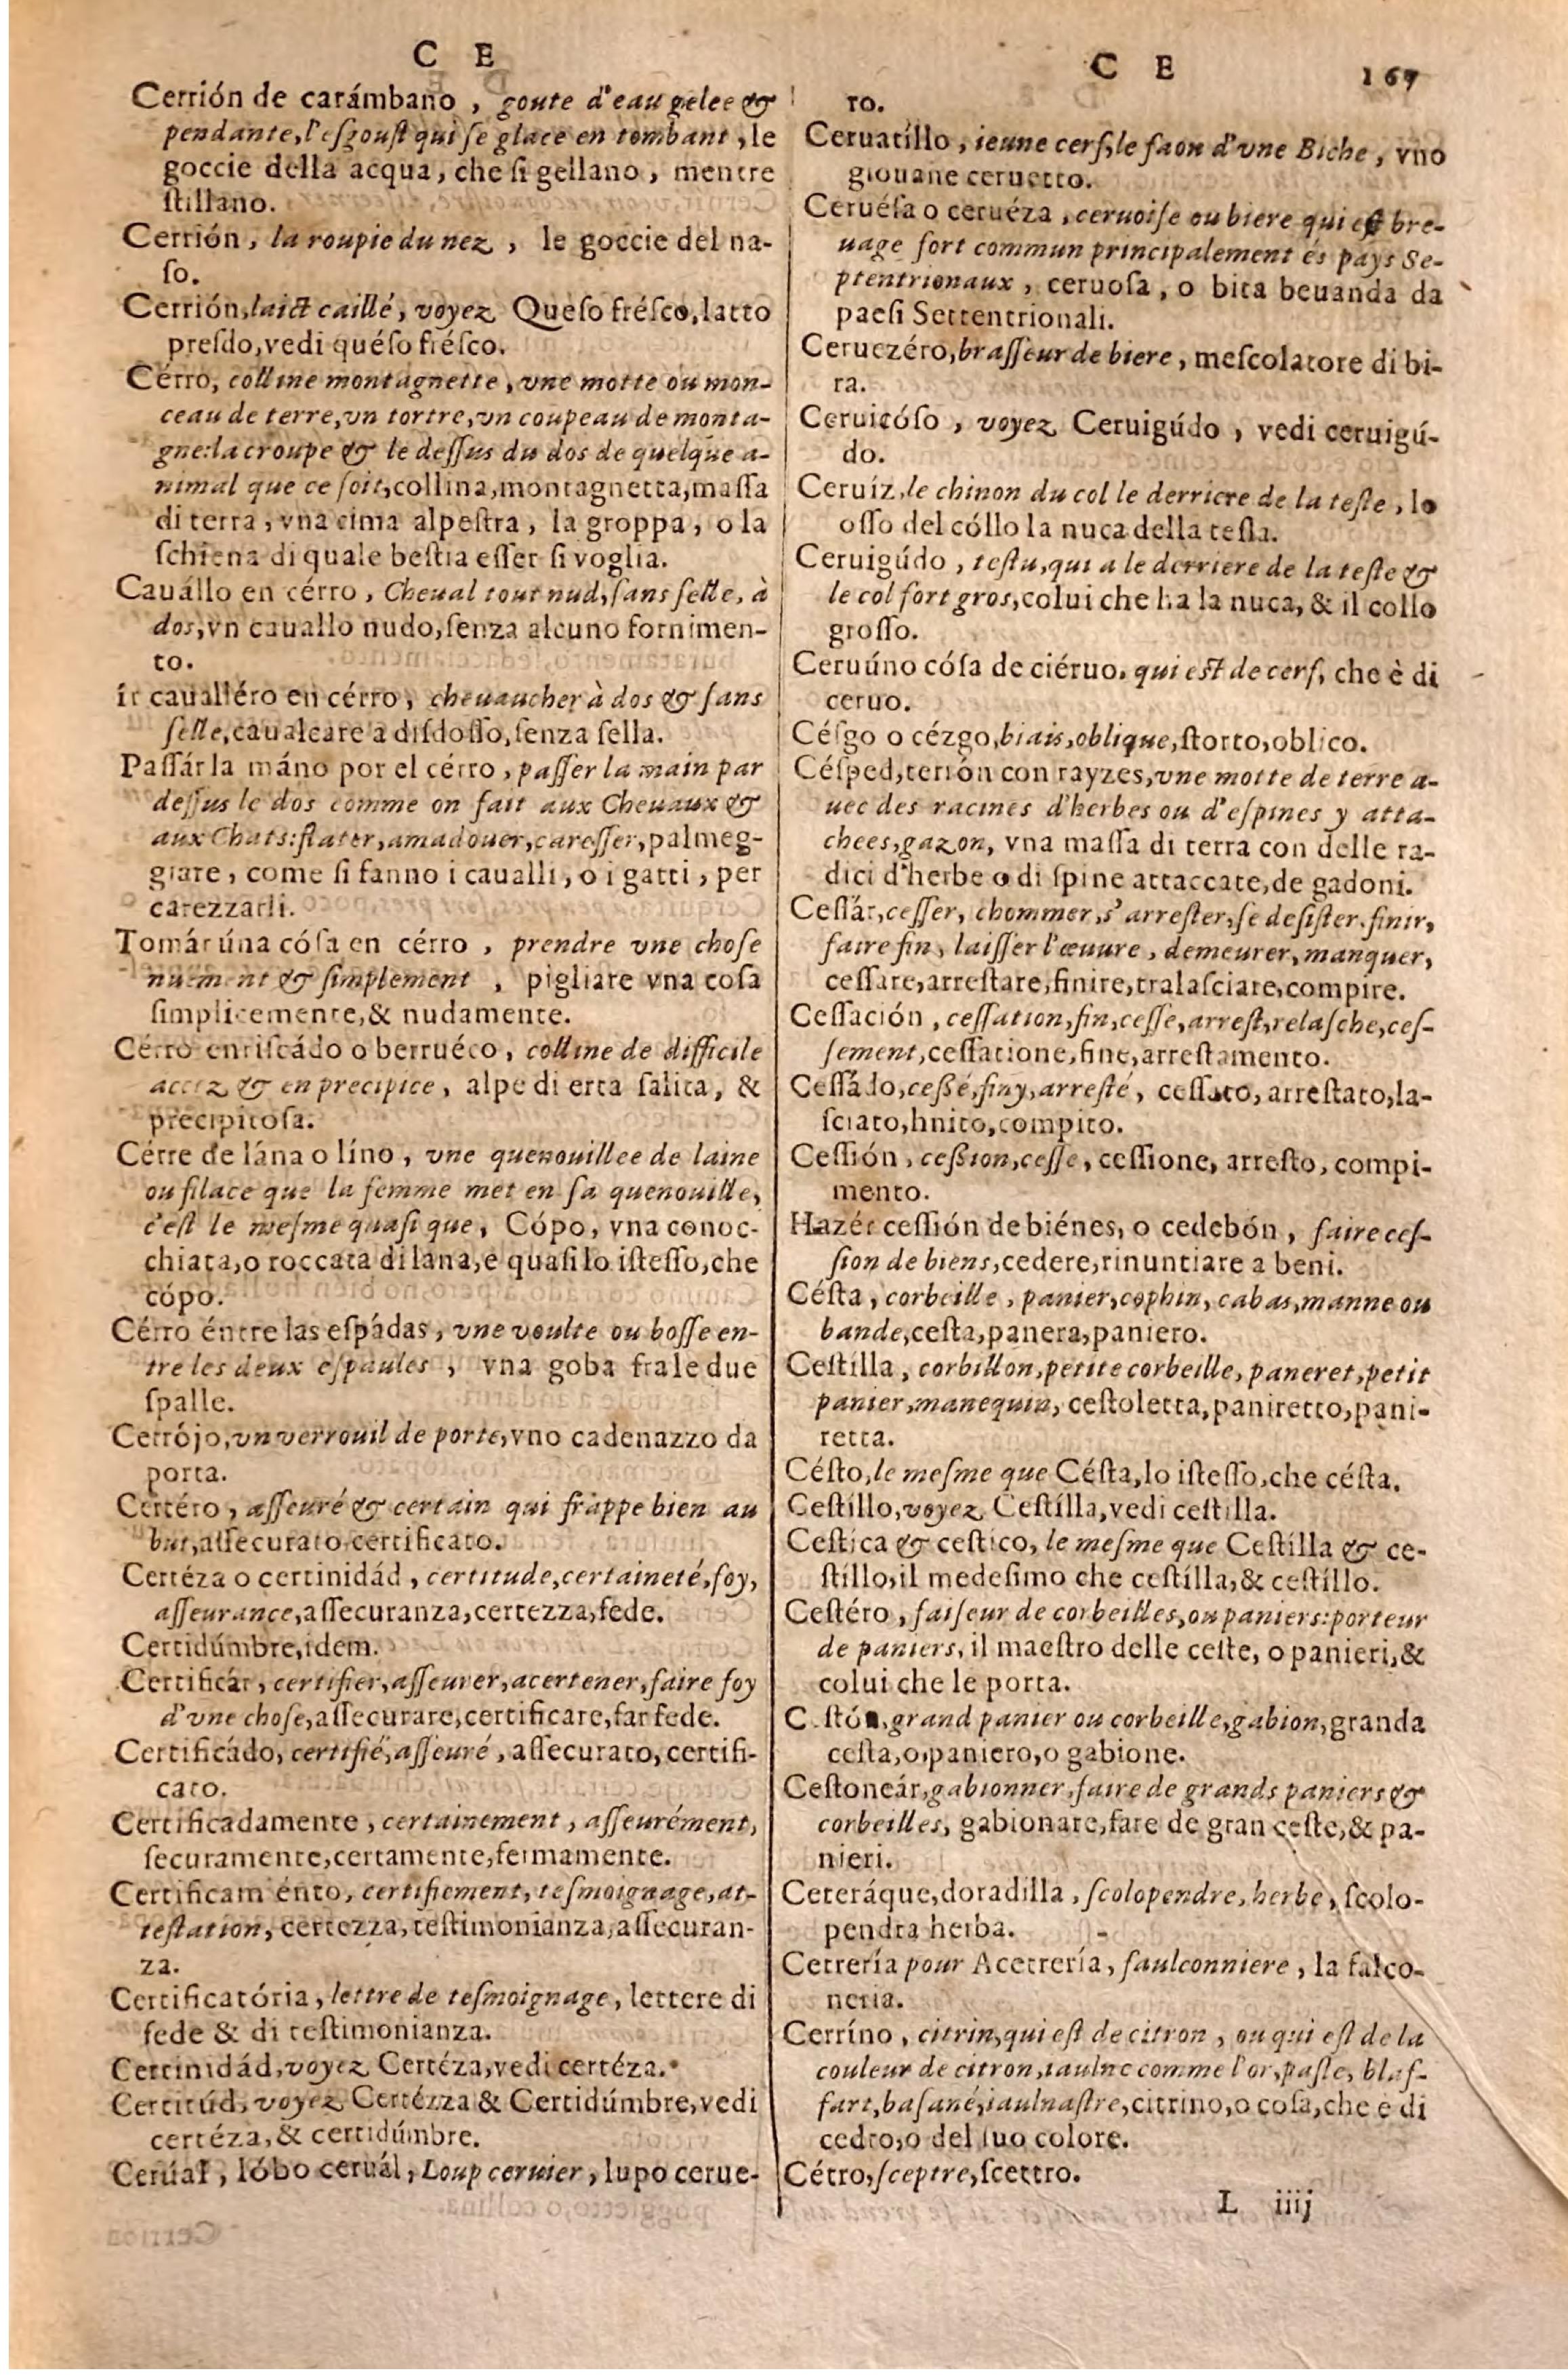 C E
Cerrión de carámbano, goute d'eau gelee &
pendante, l'esgoust qui se glace en tombant, le
goccie della acqua, che si gellano, mentre
stillano.
Cerrión, la roupie du nez, le goccie del na-
so.
Cerrión, laict caillé, voyez Queso frésco, latto
presdo, vedi quéso frésco.
Cérro, colline montagnette, vne motte ou mon-
ceau de terre, vn tortre, vn coupeau de monta-
gne: la croupe & le dessus du dos de quelque a-
nimal que ce soit, collina, montagnetta, massa
di terra, vna cima alpestra, la groppa, o la
schiena di quale bestia esser si voglia.
Cauállo en cérro, Cheual tout nud, sans selle, à
dos, vn cauallo nudo, senza alcuno fornimen-
to.
ír cauálléro en cérro, cheuaucher à dos & sans
selle, caualcare a disdosso, senza sella.
Passár la máno por el cérro, passer la main par
dessus le dos comme on fait aux Cheuaux &
aux Chats: flater, amadouer, caresser, palmeg-
giare, come si fanno i caualli, o i gatti, per
carezzarli.
Tomár úna cósa en cérro, prendre vne chose
nuement & simplement, pigliare vna cosa
simplicemente, & nudamente.
Cérro enriscádo o berruéco, colline de difficile
accez & en precipice, alpe di erta salita, &
precipitosa.
Cérre de lána o líno, vne quenouillee de laine
ou filace que la femme met en sa quenouille,
c'est le mesme quasi que, Cópo, vna conoc-
chiata, o roccata di lana, e quasi lo istesso, che
cópo.
Cérro éntre las espádas, vne voulte ou bosse en-
tre les deux espaules, vna goba frale due
spalle.
Cerrójo, vn verrouil de porte, vno cadenazzo da
porta.
Certéro, asseuré & certain qui frappe bien au
but, assecurato certificato.
Certéza o certinidád, certitude, certaineté, foy,
asseurance, assecuranza, certezza, fede.
Certidúmbre, idem.
Certificár, certifier, asseurer, acertener, faire foy
d'vne chose, assecurare, certificare, far fede.
Certificádo, certifié, asseuré, assecurato, certifi-
cato.
Certificadamente, certainement, asseurément,
securamente, certamente, fermamente.
Certificam énto, certifiement, tesmoignage, at-
testation, certezza, testimonianza, assecuran-
za.
Certificatória, lettre de tesmoignage, lettere di
fede & di testimonianza.
Certinidád, voyez Certéza, vedi certéza.
Certitúd, voyez Certézza & Certidúmbre, vedi
certéza, & certidúmbre.
Ceruál, lóbo ceruál, Loup ceruier, lupo cerue-
C E 167
ro.
Ceruatíllo, ieune cerf, le faon d'vne Biche, vno
giouane ceruetto.
Ceruésa o ceruéza, ceruoise ou biere qui est bre-
uage fort commun principalement és pays Se-
ptentrionaux, ceruosa, o bira beuanda da
paesi Settentrionali.
Ceruezéro, brasseur de biere, mescolatore di bi-
ra.
Ceruicóso, voyez Ceruigúdo, vedi ceruigú-
do.
Ceruíz, le chinon du col le derriere de la teste, lo
osso del cóllo la nuca della testa.
Ceruigúdo, testu, qui a le derriere de la teste &
le col fort gros, colui che ha la nuca, & il collo
grosso.
Ceruúno cósa de ciéruo. qui est de cerf, che è di
ceruo.
Césgo o cézgo, biais, oblique, storto, oblico.
Césped, terrón con rayzes, vne motte de terre a-
uec des racines d'herbes ou d'espines y atta-
chees, gazon, vna massa di terra con delle ra-
dici d'herbe o di spine attaccate, de gadoni.
Cessár, cesser, chommer, s'arrester, se desister, finir,
faire fin, laisser l'œuure, demeurer, manquer,
cessare, arrestare, finire, tralasciare, compire.
Cessación, cessation, fin, cesse, arrest, relasche, ces-
sement, cessatione, fine, arrestamento.
Cessádo, cessé, finy, arresté, cessato, arrestato, la-
sciato, hnito, compito.
Cessión, cession, cesse, cessione, arresto, compi-
mento.
Hazér cessión de biénes, o cedebón, faire ces-
sion de biens, cedere, rinuntiare a beni.
Césta, corbeille, panier, cophin, cabas, manne ou
bande, cesta, panera, paniero.
Cestílla, corbillon, petite corbeille, paneret, petit
panier, manequin, cestoletta, paniretto, pani-
retta.
Césto, le mesme que Césta, lo istesso, che césta.
Cestíllo, voyez Cestílla, vedi cestilla.
Cestica & cestico, le mesme que Cestílla & ce-
stíllo, il medesimo che cestílla, & cestíllo.
Cestéro, faiseur de corbeilles, ou paniers: porteur
de paniers, il maestro delle ceste, o panieri, &
colui che le porta.
C stón, grand panier ou corbeille, gabion, granda
cesta, o, paniero, o gabione.
Cestoneár, gabionner, faire de grands paniers &
corbeilles, gabionare, fare de gran ceste, & pa-
nieri.
Ceteráque, doradilla, scolopendre, herbe, scolo-
pendra herba.
Cetrería pour Acetrería, faulconniere, la falco-
neria.
Cerríno, citrin, qui est de citron, ou qui est de la
couleur de citron, iaulne comme l'or, pasle, blaf-
fart, basané, iaulnastre, citrino, o cosa, che e di
cedro, o del suo colore.
Cétro, sceptre, scettro.
L iiij